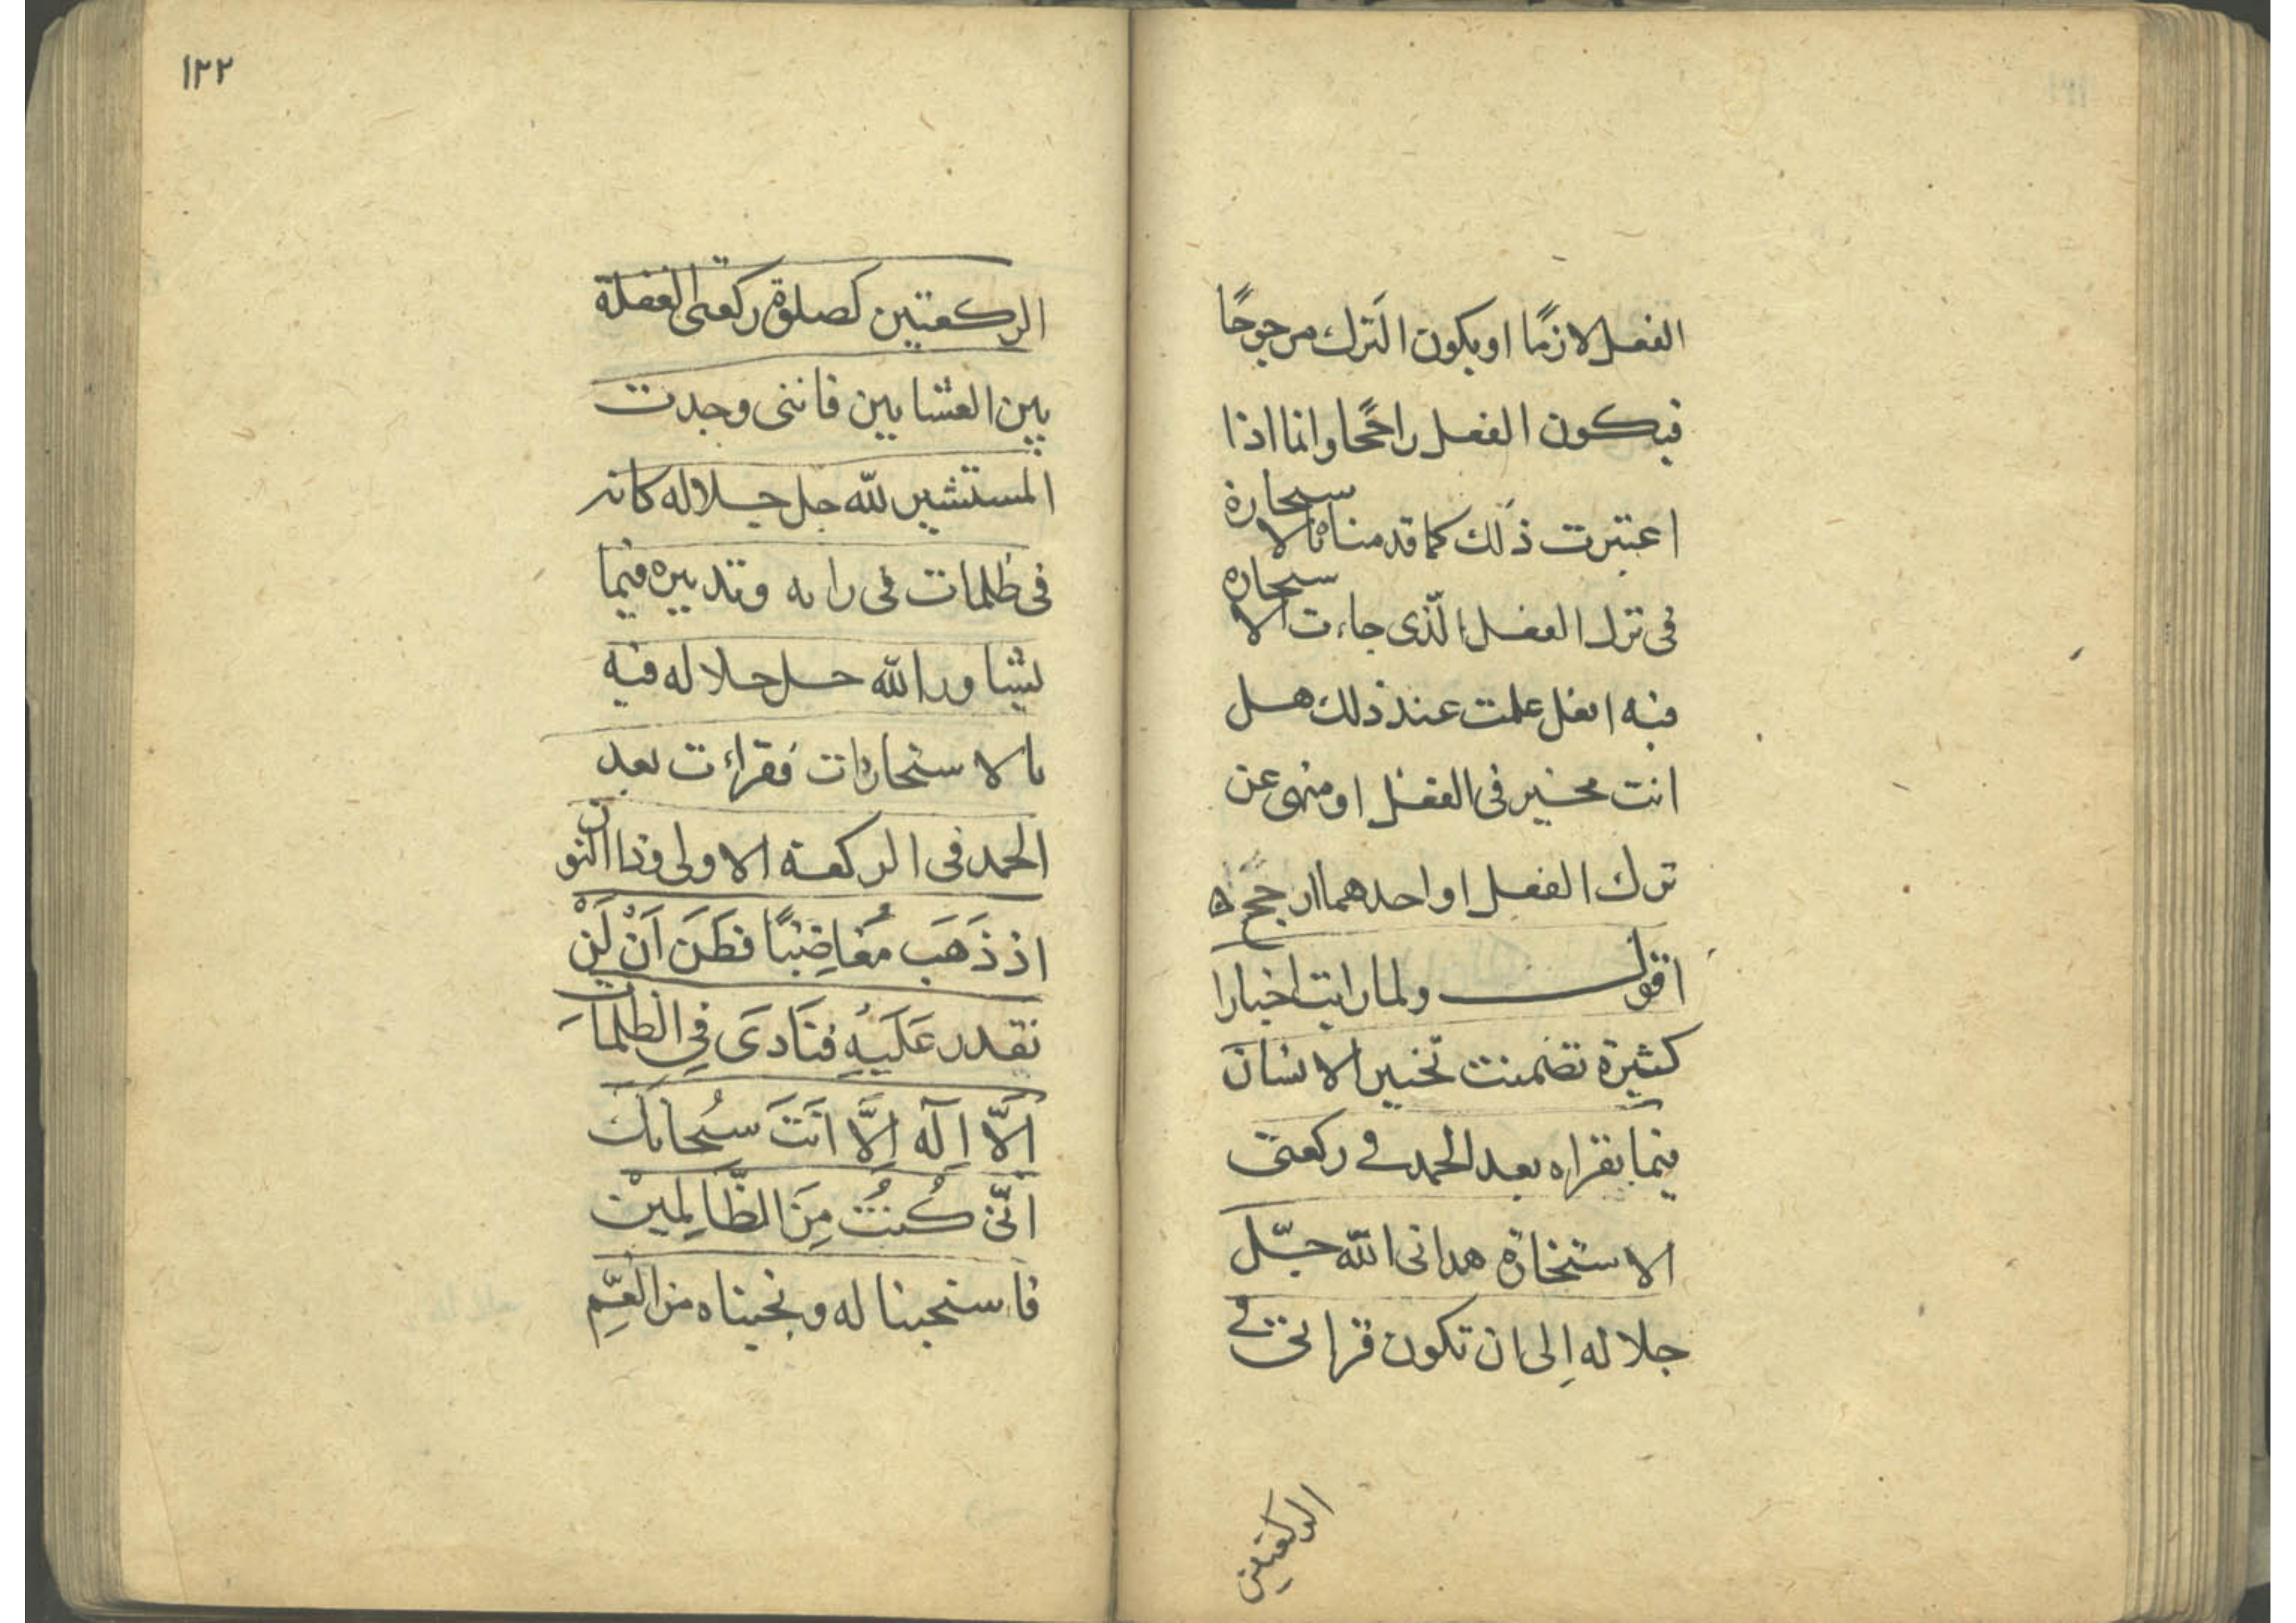 الفعل لازمًا او يكون الترك مرجوحًا
فيكون الفعل راجحًا وانما اذا
اعتبرت ذلك كما قدمناه بالاستخارة
فى ترك الفعل الّذى جاءت الاستخاره
فيه افعل علمت عند ذلك هل
انت مخير فى الفعل او منهى عن
ترك الفعل او احدهما ارجح
اقول ولما رايت اخبارا
كثيرة تضمنت تخيير الانسان
فيما يقراه بعد الحمد فى ركعتى
الاستخارة هدانى الله جلّ
جلاله إلى ان تكون قرائتى فى
الركعتين
١٢٢
الركعتين كصلوة ركعتى الغفلة
بين العشايين فاننى وجدت
المستشير لله جل جلاله كانه
فى ظلمات فى رايه وتدبيره فيما
يشاور الله جل جلاله فيه
بالاستخارات فقرات بعد
الحمد فى الركعة الاولى وذا النون
اذ ذَهَبَ مُغاضِبًا فظَنَ اَنْ لَنْ
نقدر عَلَيْهِ فنَادَى فِى الظلمات
اَلَّا اِلَه اِلَّا اَنتَ سُبحانك
اَنّى كُنتُ مِنَ الظَّالِمينْ
فاستجبنا له ونجيناه من الغَمِّ